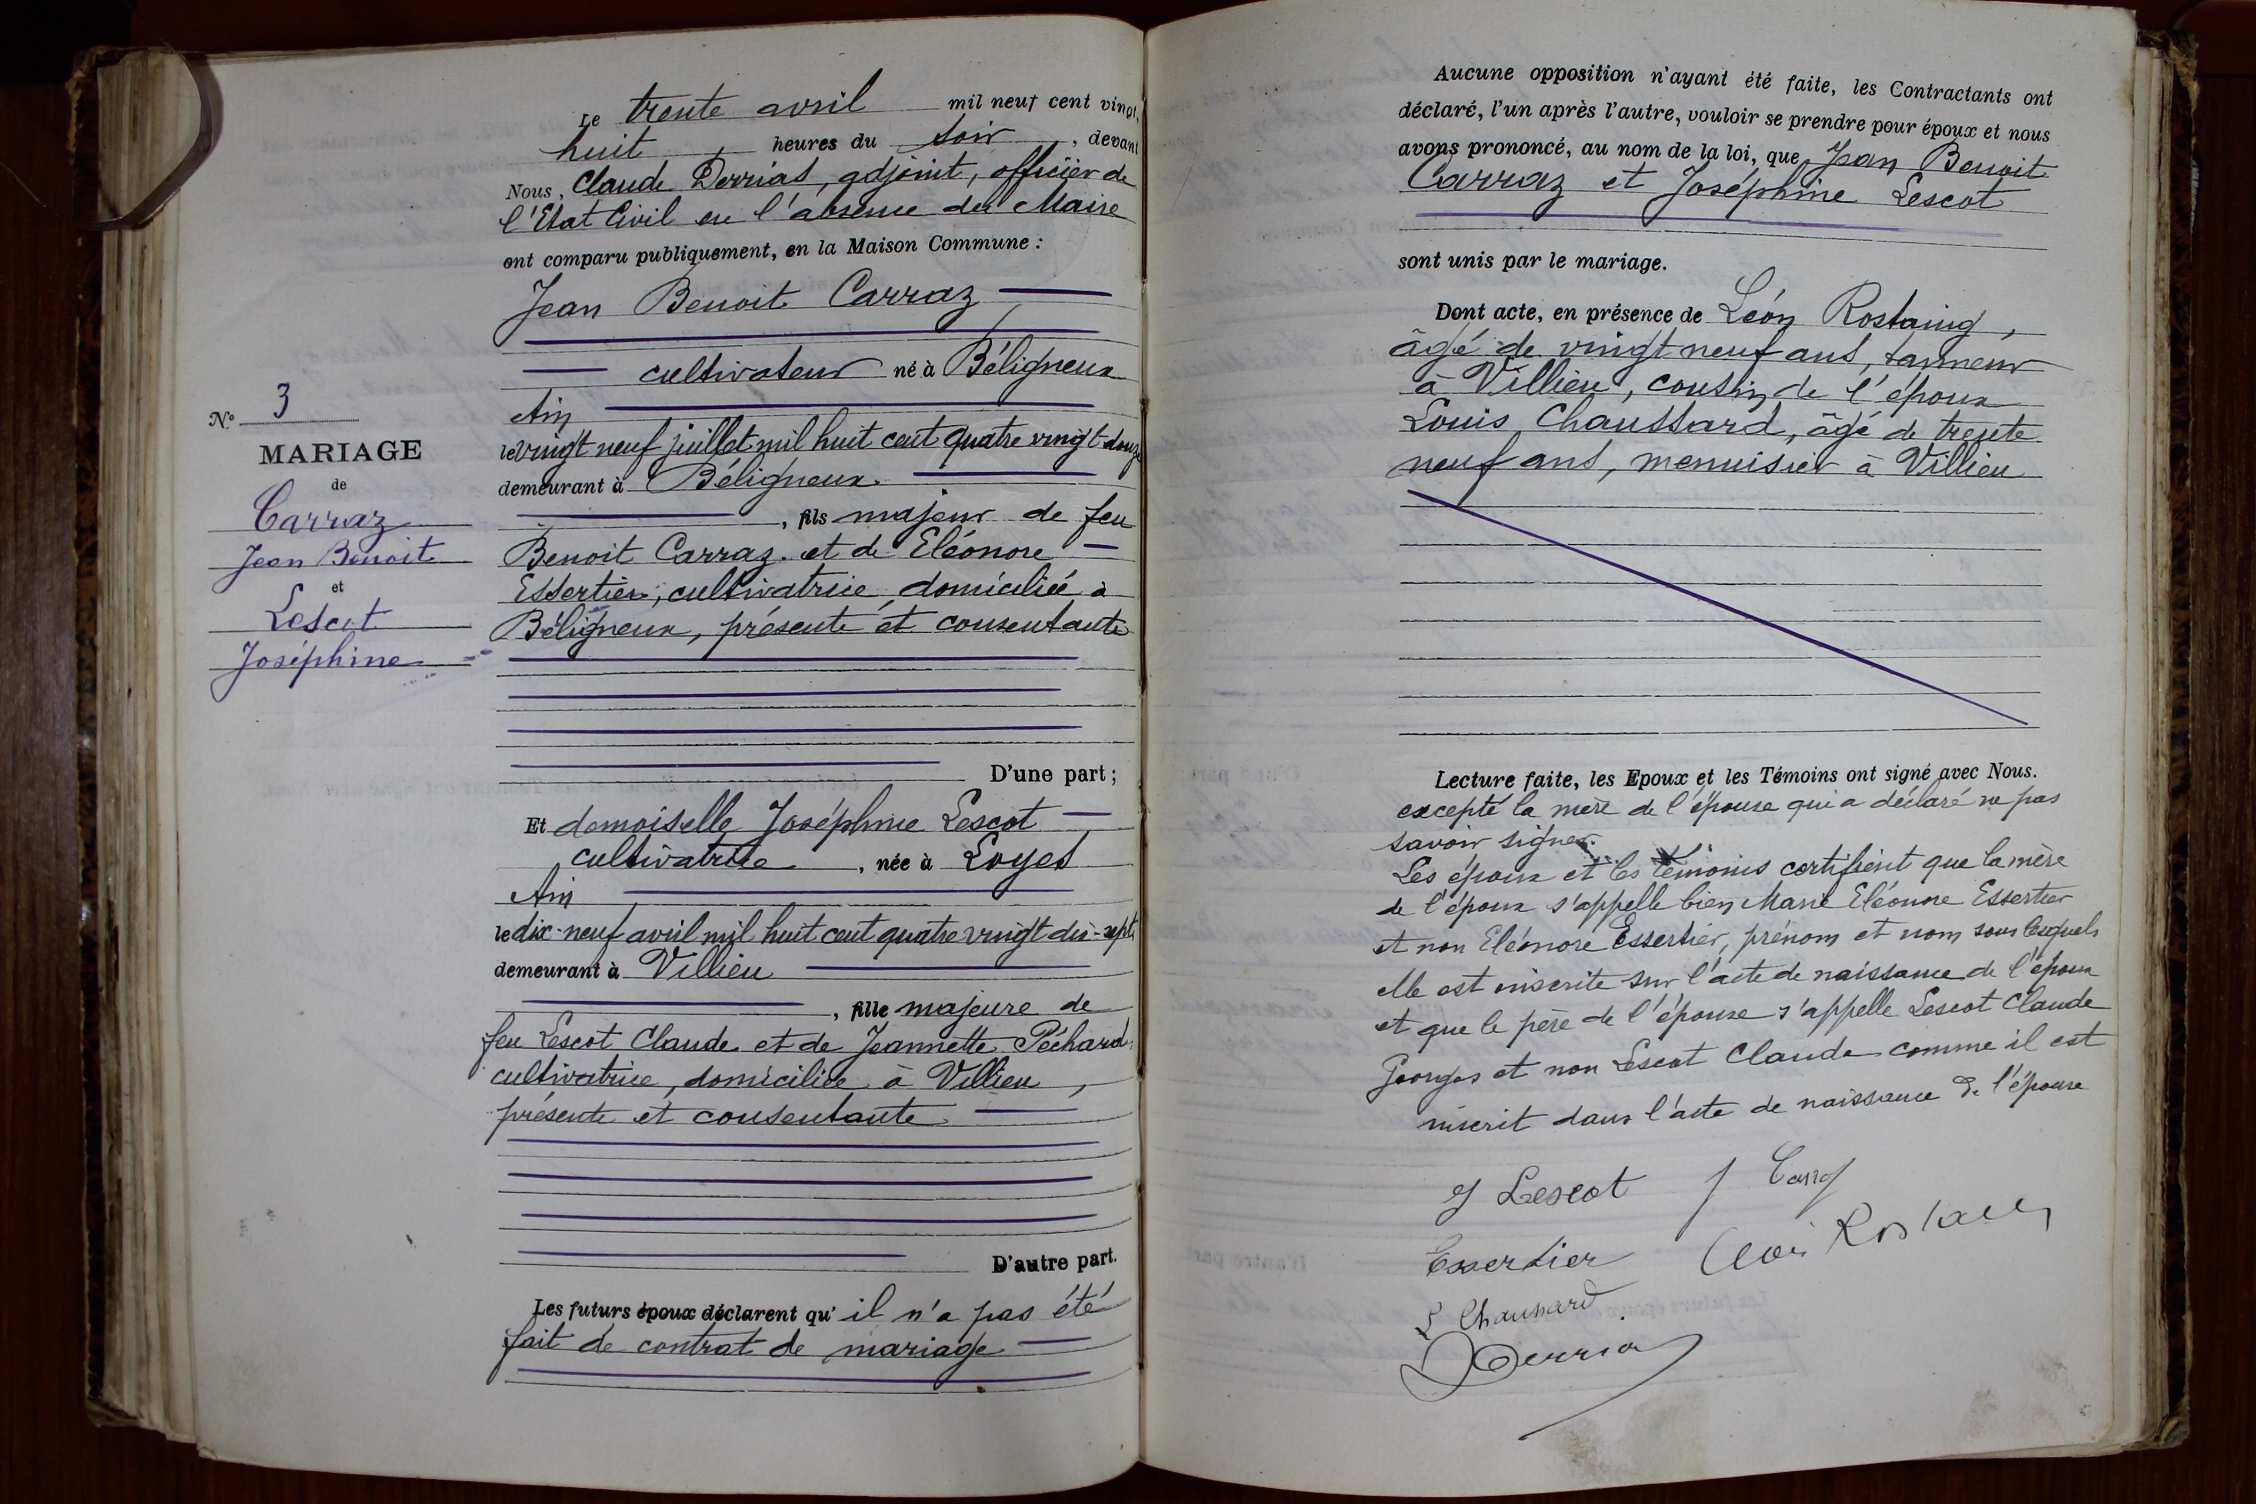 Le trente avril mil neuf cent vingt,
huit heures du soir, devant
Nous, Claude Derrias, adjoint, officier de
l'Etat Civil en l'absence du Maire
ont comparu publiquement, en la Maison Commune :
Jean Benoit Carraz
cultivateur né à Béligneux
Ain
le vingt neuf juillet mil huit cent quatre vingt douze
demeurant à Béligneux
, fils majeur de feu
Benoit Carraz et de Eléonore
Essertier, cultivatrice, domiciliée à
Béligneux, présente et consentante
D'une part ;
Et demoiselle Joséphine Lescot
cultivatrice, née à Loyes
Ain
le dix-neuf avril mil huit cent quatre vingt dix-sept
demeurant à Villieu
, fille majeure de
feu Lescot Claude et de Jeannette Péchard,
cultivatrice, domiciliée à Villieu,
présente et consentante
D'autre part.
Les futurs époux déclarent qu'il n'a pas été
fait de contrat de mariage
N° 3
MARIAGE
de
Carraz
Jean Benoit
et
Lescot
Joséphine
Aucune opposition n'ayant été faite, les Contractants ont
déclaré, l'un après l'autre, vouloir se prendre pour époux et nous
avons prononcé, au nom de la loi, que Jean Benoit
Carraz et Joséphine Lescot
sont unis par le mariage.
Dont acte, en présence de Léon Rostaing,
âgé de vingt neuf ans, tanneur
à Villieu, cousin de l'époux
Louis Chaussard, âgé de trente
neuf ans, menuisier à Villieu
Lecture faite, les Epoux et les Témoins ont signé avec Nous.
excepté la mère de l'épouse qui a déclaré ne pas
savoir signer.
Les époux et les témoins certifient que la mère
de l'époux s'appelle bien Marie Eléonore Essertier
et non Eléonore Essertier, prénom et nom sous lesquels
elle est inscrite sur l'acte de naissance de l'époux
et que le père de l'épouse s'appelle Lescot Claude
Georges et non Lescot Claude comme il est
inscrit dans l'acte de naissance de l'épouse
J Lescot J Carraz
Essertier Léon Rostaing
L Chaussard
Derrias